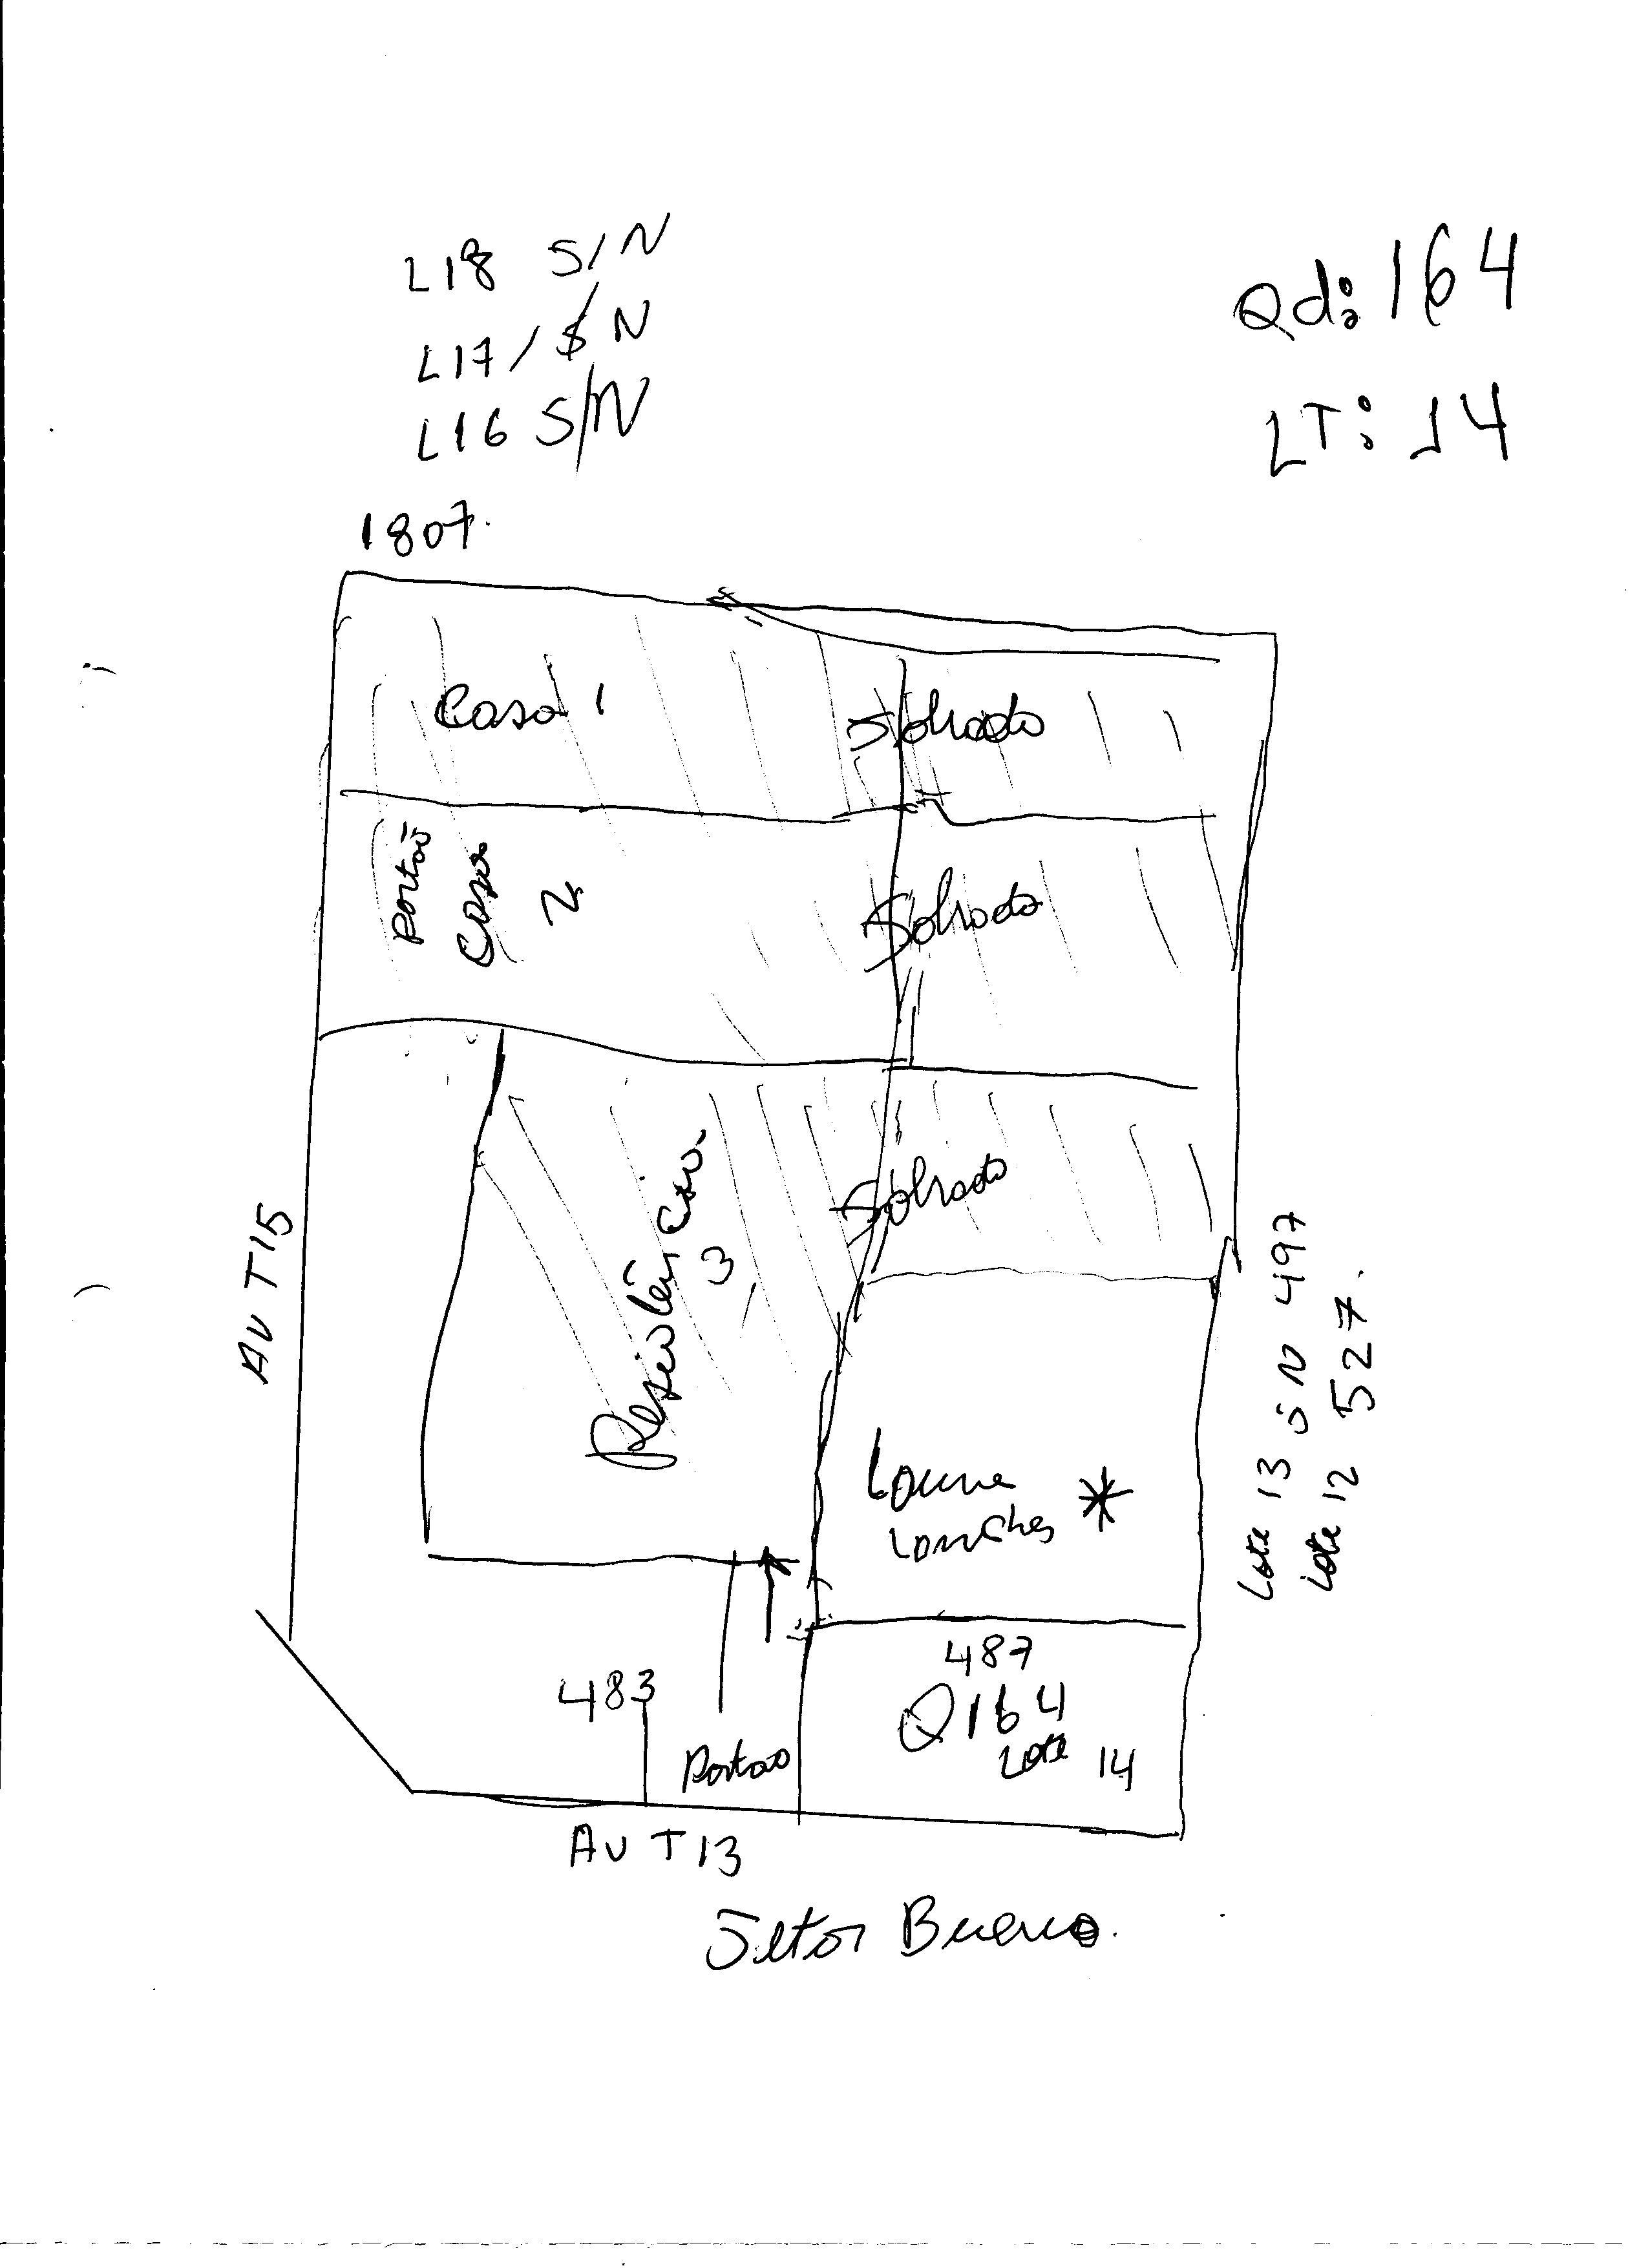 L18 S/N
L17/ S/N
L16 S/N
Qd: 164
LT: 14
1807.
Casa 1
Sobrado
Portão
Casa 2
Sobrado
Residência 3
Sobrado
Av T15
Lote 13 S N 497
Lote 12 527.
Lanches *
487
Q164
Lote 14
483
Portao
Av T13
Setor Bueno.